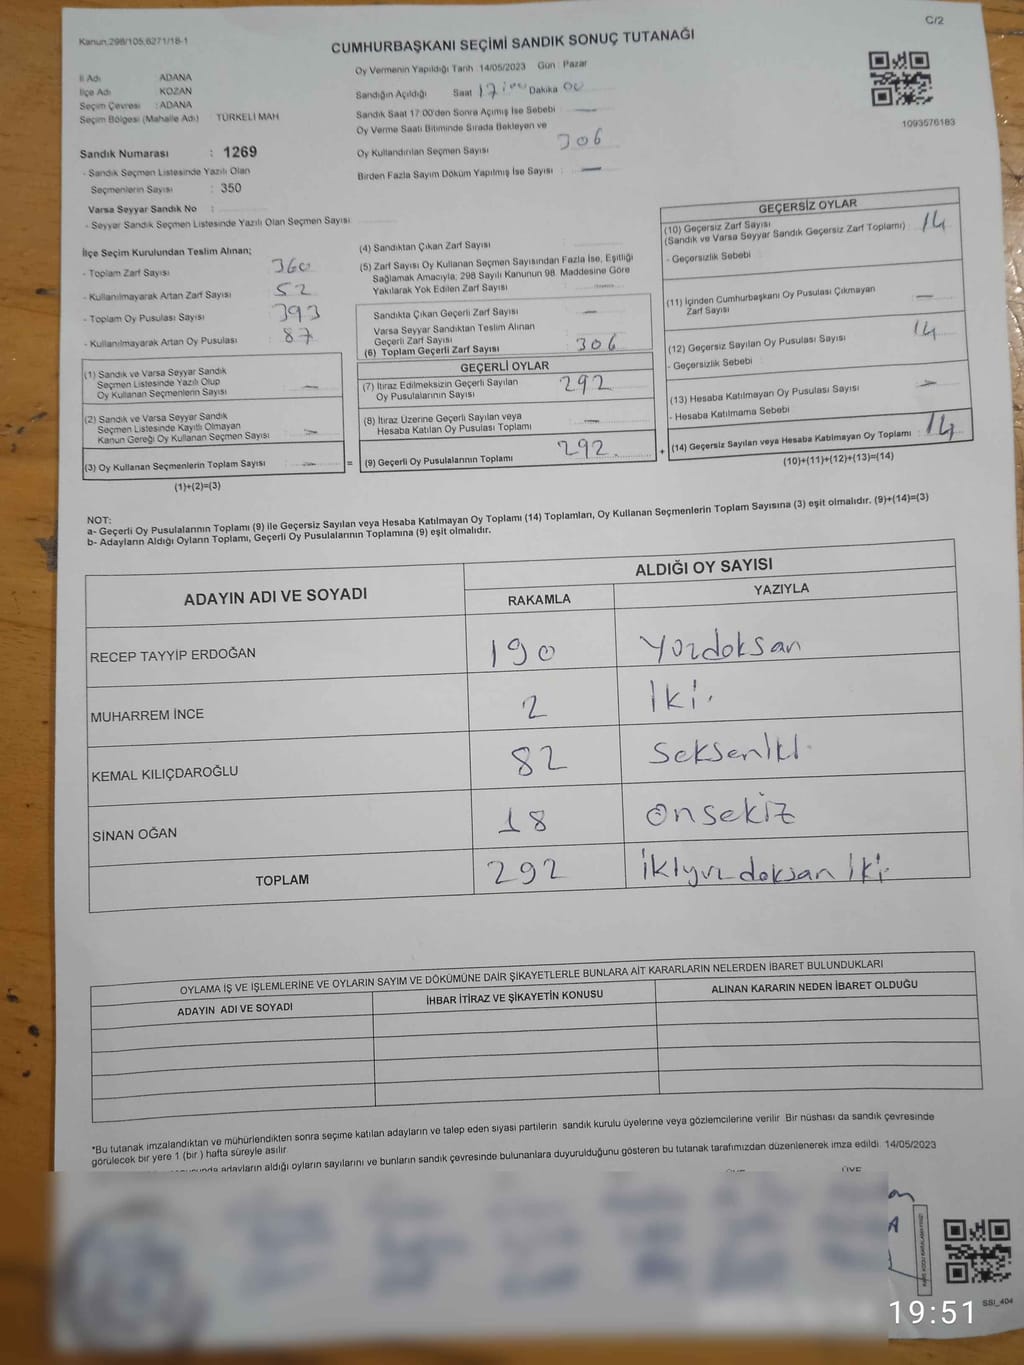 Kanun.298/105,6271/18-1
C/2
CUMHURBAŞKANI SEÇİMİ SANDIK SONUÇ TUTANAĞI
İl Adı : ADANA
İlçe Adı : KOZAN
Seçim Çevresi : ADANA
Seçim Bölgesi (Mahalle Adı) : TÜRKELİ MAH
Sandık Numarası : 1269
- Sandık Seçmen Listesinde Yazılı Olan
Seçmenlerin Sayısı : 350
Varsa Seyyar Sandık No :
- Seyyar Sandık Seçmen Listesinde Yazılı Olan Seçmen Sayısı
Oy Vermenin Yapıldığı Tarih 14/05/2023 Gün : Pazar
Sandığın Açıldığı Saat 17:00 Dakika 00
Sandık Saat 17.00'den Sonra Açımış İse Sebebi —
Oy Verme Saati Bitiminde Sırada Bekleyen ve
Oy Kullandırılan Seçmen Sayısı 306
Birden Fazla Sayım Döküm Yapılmış İse Sayısı : —
1093576183
İlçe Seçim Kurulundan Teslim Alınan;
- Toplam Zarf Sayısı 360
- Kullanılmayarak Artan Zarf Sayısı 52
- Toplam Oy Pusulası Sayısı 393
- Kullanılmayarak Artan Oy Pusulası 87
(1) Sandık ve Varsa Seyyar Sandık
Seçmen Listesinde Yazılı Olup
Oy Kullanan Seçmenlerin Sayısı —
(2) Sandık ve Varsa Seyyar Sandık
Seçmen Listesinde Kayıtlı Olmayan
Kanun Gereği Oy Kullanan Seçmen Sayısı —
(3) Oy Kullanan Seçmenlerin Toplam Sayısı —
(1)+(2)=(3)
(4) Sandıktan Çıkan Zarf Sayısı
(5) Zarf Sayısı Oy Kullanan Seçmen Sayısından Fazla İse, Eşitliği
Sağlamak Amacıyla, 298 Sayılı Kanunun 98. Maddesine Göre
Yakılarak Yok Edilen Zarf Sayısı
Sandıkta Çıkan Geçerli Zarf Sayısı —
Varsa Seyyar Sandıktan Teslim Alınan
Geçerli Zarf Sayısı
(6) Toplam Geçerli Zarf Sayısı 306
GEÇERLİ OYLAR
(7) İtiraz Edilmeksizin Geçerli Sayılan
Oy Pusulalarının Sayısı 292
(8) İtiraz Üzerine Geçerli Sayılan veya
Hesaba Katılan Oy Pusulası Toplamı —
= (9) Geçerli Oy Pusulalarının Toplamı 292
GEÇERSİZ OYLAR
(10) Geçersiz Zarf Sayısı
(Sandık ve Varsa Seyyar Sandık Geçersiz Zarf Toplamı) 14
- Geçersizlik Sebebi
(11) İçinden Cumhurbaşkanı Oy Pusulası Çıkmayan
Zarf Sayısı —
(12) Geçersiz Sayılan Oy Pusulası Sayısı 14
- Geçersizlik Sebebi
(13) Hesaba Katılmayan Oy Pusulası Sayısı —
- Hesaba Katılmama Sebebi
+ (14) Geçersiz Sayılan veya Hesaba Katılmayan Oy Toplamı : 14
(10)+(11)+(12)+(13)=(14)
NOT:
a- Geçerli Oy Pusulalarının Toplamı (9) ile Geçersiz Sayılan veya Hesaba Katılmayan Oy Toplamı (14) Toplamları, Oy Kullanan Seçmenlerin Toplam Sayısına (3) eşit olmalıdır. (9)+(14)=(3)
b- Adayların Aldığı Oyların Toplamı, Geçerli Oy Pusulalarının Toplamına (9) eşit olmalıdır.
ADAYIN ADI VE SOYADI
ALDIĞI OY SAYISI
RAKAMLA YAZIYLA
RECEP TAYYİP ERDOĞAN 190 Yüzdoksan
MUHARREM İNCE 2 İki
KEMAL KILIÇDAROĞLU 82 Sekseniki
SİNAN OĞAN 18 Onsekiz
TOPLAM 292 İkiyüz doksan iki
OYLAMA İŞ VE İŞLEMLERİNE VE OYLARIN SAYIM VE DÖKÜMÜNE DAİR ŞİKAYETLERLE BUNLARA AİT KARARLARIN NELERDEN İBARET BULUNDUKLARI
ADAYIN ADI VE SOYADI İHBAR İTİRAZ VE ŞİKAYETİN KONUSU ALINAN KARARIN NEDEN İBARET OLDUĞU
*Bu tutanak imzalandıktan ve mühürlendikten sonra seçime katılan adayların ve talep eden siyasi partilerin sandık kurulu üyelerine veya gözlemcilerine verilir. Bir nüshası da sandık çevresinde
görülecek bir yere 1 (bir ) hafta süreyle asılır.
adayların aldığı oyların sayılarını ve bunların sandık çevresinde bulunanlara duyurulduğunu gösteren bu tutanak tarafımızdan düzenlenerek imza edildi. 14/05/2023
ÜYE
SSI_404
19:51